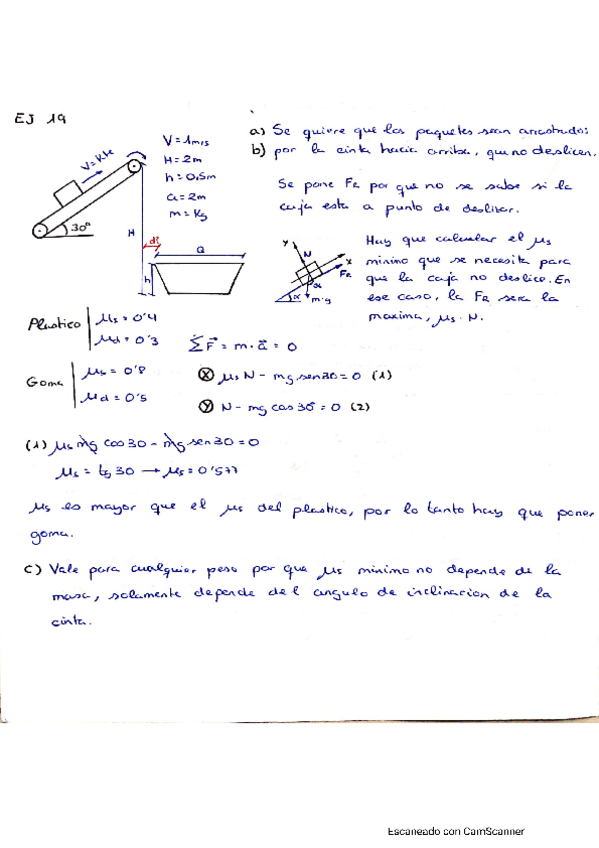 EJ 19
a) Se quiere que los paquetes sean arrastrados
b) por la cinta hacia arriba, que no deslicen.
V = kte
V = 1m/s
H = 2m
h = 0,5m
a = 2m
m = Kg
30°
H
d?
a
h
Se pone FR por que no se sabe si la
caja esta a punto de deslizar.
y
N
x
FR
α
α
m·g
Hay que calcular el μs
minimo que se necesita para
que la caja no deslice. En
ese caso, la FR sera la
maxima, μs·N.
Plastico
μs = 0'4
μd = 0'3
Goma
μs = 0'8
μd = 0'5
ΣF = m·a = 0
(X) μs N - mg sen30 = 0 (1)
(Y) N - mg cos 30 = 0 (2)
(1) μs mg cos30 - mg sen30 = 0
μs = tg 30 → μs = 0'577
μs es mayor que el μs del plastico, por lo tanto hay que poner
goma.
c) Vale para cualquier peso por que μs minimo no depende de la
masa, solamente depende del angulo de inclinacion de la
cinta.
Escaneado con CamScanner